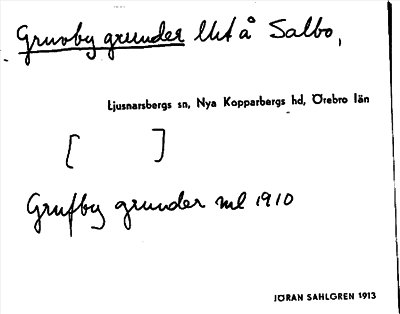 Gruvby grunder Ut å Salbo,
Ljusnarsbergs sn, Nya Kopparbergs hd, Örebro län
[ ]
Grufby grunder ml 1910
JÖRAN SAHLGREN 1913